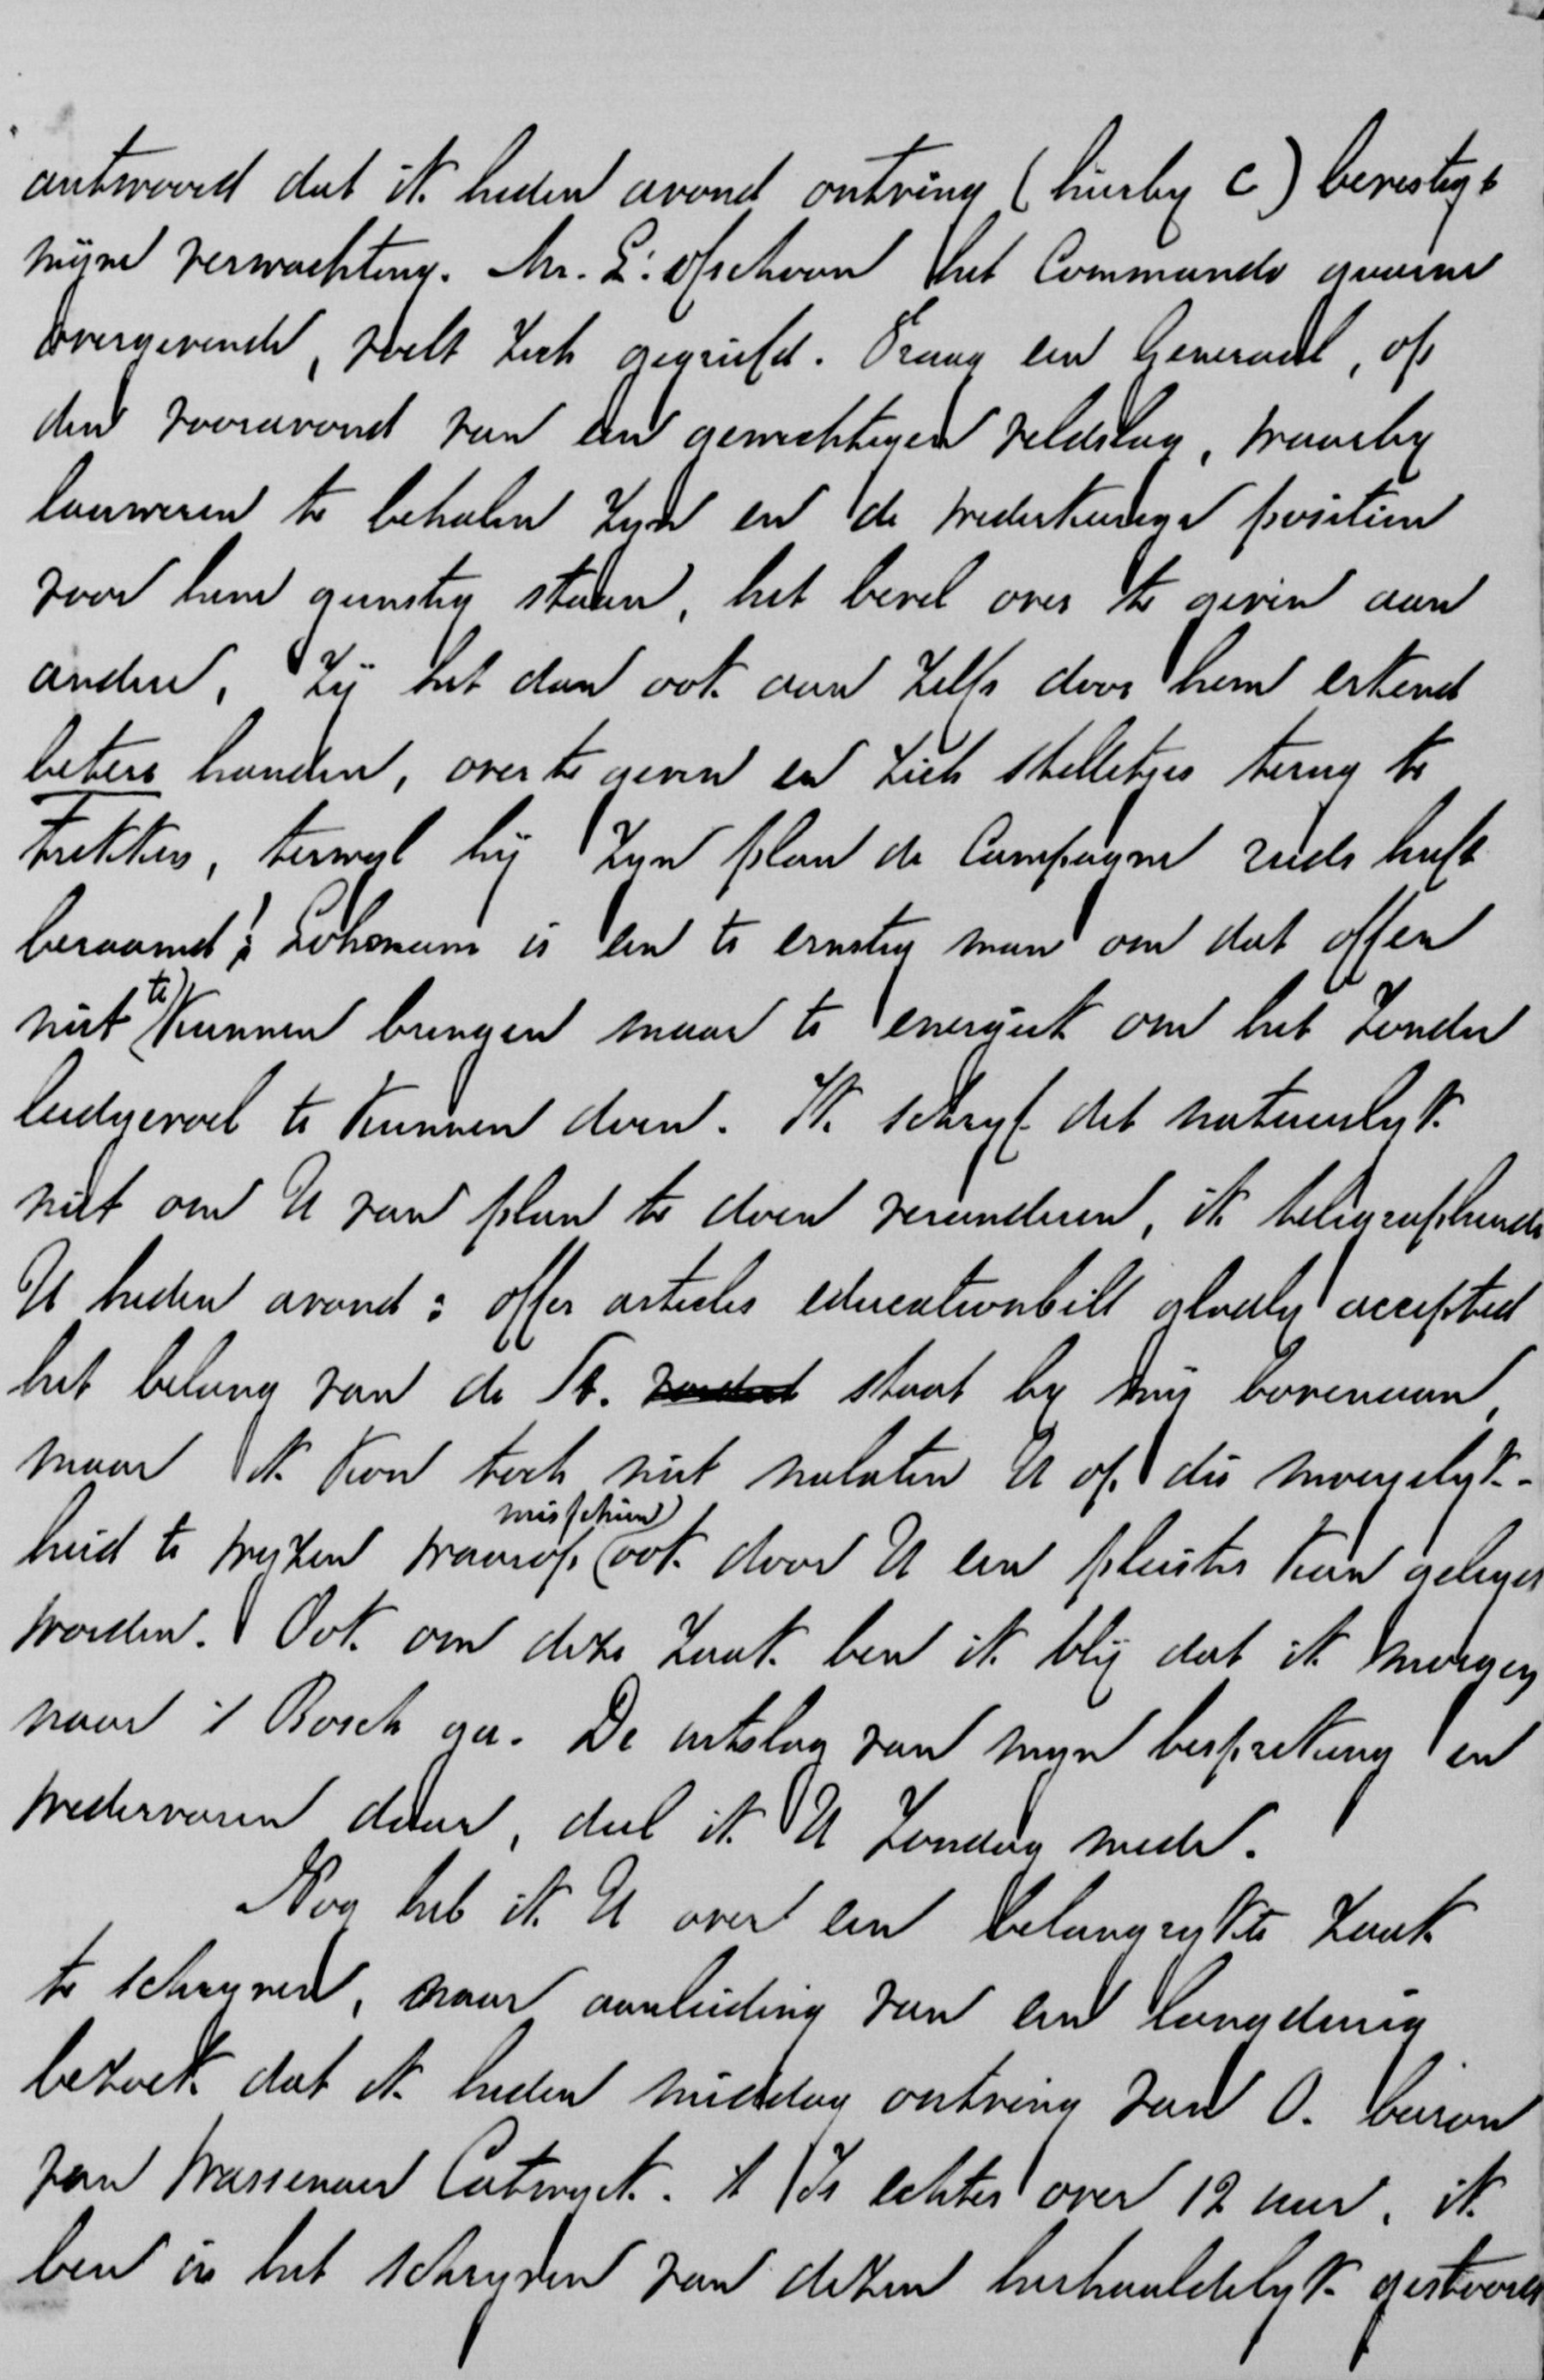 antwoord dat ik heden avond ontving (hierby C) bevestigt
mijne verwachting. Mr. L: ofschoon het Commando gaarne
overgevende, voelt zich gegriefd. Vraag een Generaal, op
den vooravond van een gewichtigen veldslag, waarby
lauweren te behalen zyn en de wederkeerige positien
voor hem gunstig staan, het bevel over te geven aan
andere, zij het dan ook aan zelfs door hem erkend
betere handen, over te geven en zich stelletjes terug te
trekken, terwyl hij zyn plan de Campagne reeds heeft
beraamd! Lohman is een te ernstig man om dat offer
niet te kunnen brengen maar te energiek om het zonder
leedgevoel te kunnen doen. Ik schryf dit natuurlyk
niet om U van plan te doen veranderen, ik telegrapheerde
U heden avond: offer articles educationbill gladly accepted
het belang van de St. staat by mij bovenaan,
maar ik kon toch niet nalaten U op die moeyelyk-
heid te wyzen waarop misschien ook door U een pleister kan gelegd
worden. Ook om deze zaak ben ik blij dat ik morgen
naar 's Bosch ga. De uitslag van myn bespreking en
wedervaren daar, deel ik U Zondag mede.
Nog heb ik U over een belangrykte zaak
te schryven, naar aanleiding van een langdurig
bezoek dat ik heden middag ontving van O. baron
van Wassenaer Catwyck. 't Is echter over 12 uur, ik
ben in het schryven van dezen herhaaldelyk gestoord